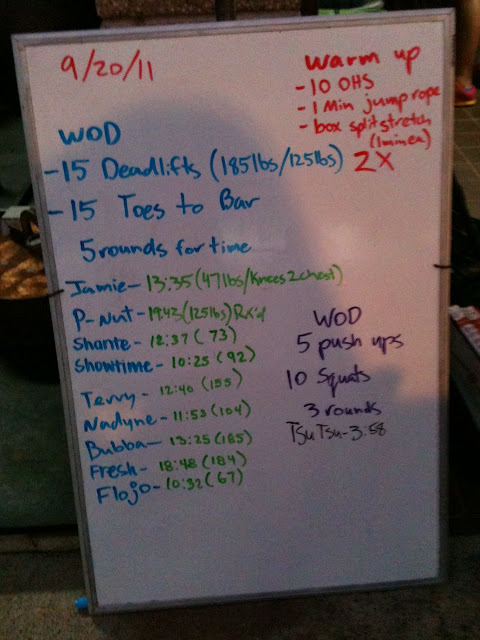 9/20/11
warm up
- 10 OHS
- 1 Min jump rope
- box split stretch
(1min ea)
2X
WOD
- 15 Deadlifts (185lbs/125lbs)
- 15 Toes to Bar
5 rounds for time
Jamie - 13:35 (47lbs/Knees2chest)
P-Nut - 19:43 (125lbs) Rx'd
Shante - 12:37 (73)
Showtime - 10:25 (92)
Terry - 12:40 (155)
Nadyne - 11:53 (104)
Bubba - 13:25 (185)
Fresh - 18:48 (184)
Flojo - 10:32 (67)
WOD
5 push ups
10 Squats
3 rounds
Tsu Tsu - 3:58